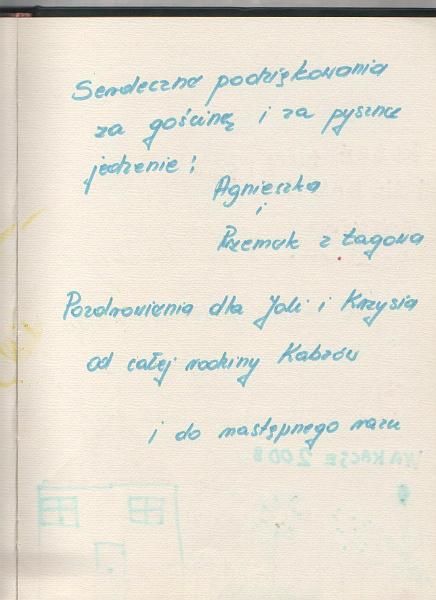 Serdeczne podziękowania
za gościnę i za pyszne
jedzenie!
Agnieszka
i
Przemek z Łagowa
Pozdrowienia dla Joli i Krzysia
od całej rodziny Kabzów
i do następnego razu
WAKACJE 2008